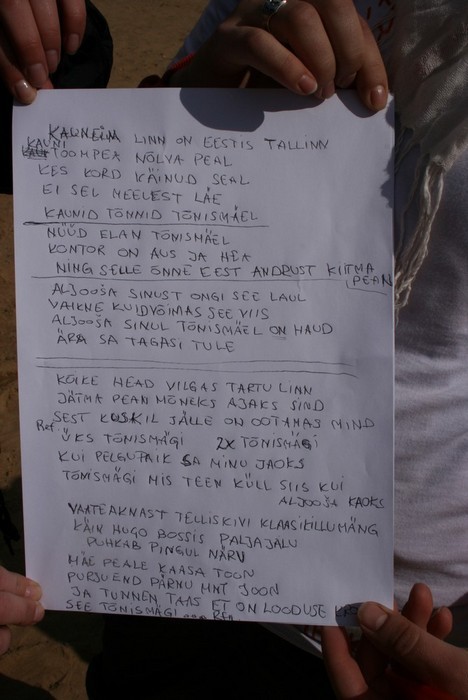 KAUNEIM LINN ON EESTIS TALLINN
KAUNI TOOMPEA NÕLVA PEAL
KES KORD KÄINUD SEAL
EI SEL MEELEST LÄE
KAUNID TÕNNID TÕNISMÄEL
NÜÜD ELAN TÕNISMÄEL
KONTOR ON AUS JA HEA
NING SELLE ÕNNE EEST ANDRUST KIITMA
PEAN
ALJOOŠA SINUST ONGI SEE LAUL
VAIKNE KUID VÕIMAS SEE VIIS
ALJOOŠA SINUL TÕNISMÄEL ON HAUD
ÄRA SA TAGASI TULE
KÕIKE HEAD VILGAS TARTU LINN
JÄTMA PEAN MÕNEKS AJAKS SIND
SEST KUSKIL JÄLLE ON OOTAMAS MIND
Ref. ÜKS TÕNISMÄGI 2X TÕNISMÄGI
KUI PELGUPAIK SA MINU JAOKS
TÕNISMÄGI MIS TEEN KÜLL SIIS KUI
ALJOOŠA KAOKS
VAATEAKNAST TELLISKIVI KLAASIKILLUMÄNG
KÄIN HUGO BOSSIS PALJAJALU
PUHKAB PINGUL NÄRV
MÄE PEALE KAASA TOON
PURJUEND PÄRNU MNT JOON
JA TUNNEN TAAS ET ON LOODUSE
SEE TÕNISMÄGI ... REF.